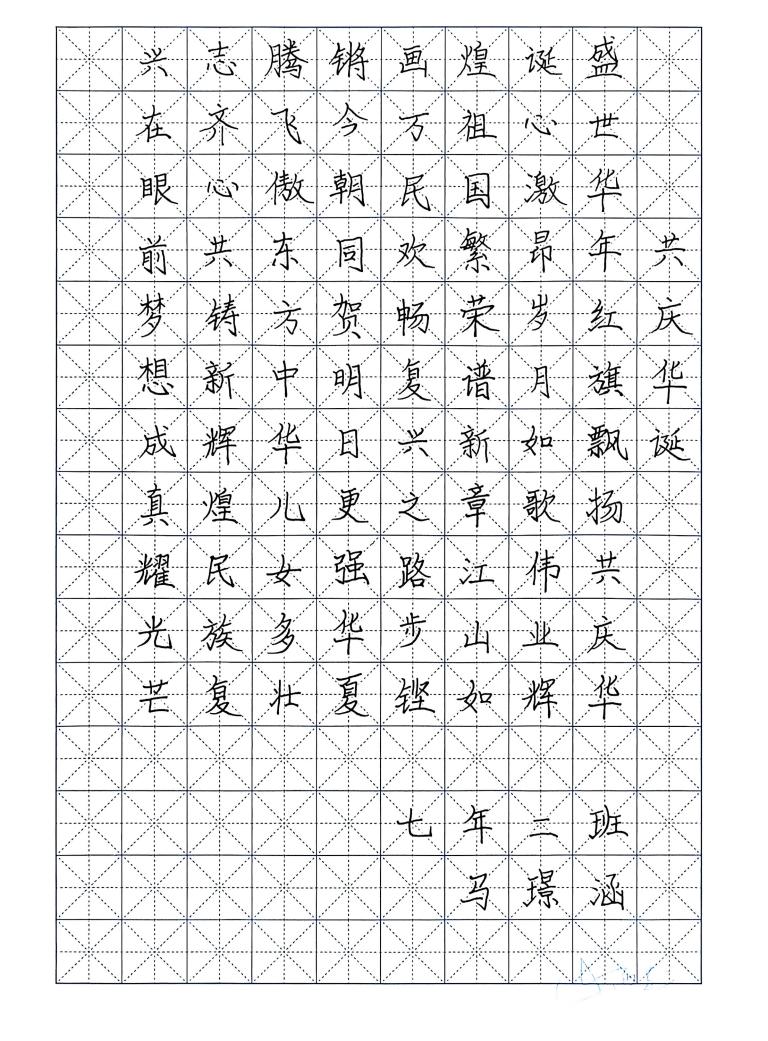 共庆华诞
盛世华年红旗飘扬共庆华
诞心激昂岁月如歌伟业辉
煌祖国繁荣谱新章江山如
画万民欢畅复兴之路步铿
锵今朝同贺明日更强华夏
腾飞傲东方中华儿女多壮
志齐心共铸新辉煌民族复
兴在眼前梦想成真耀光芒
七年二班
马璟涵